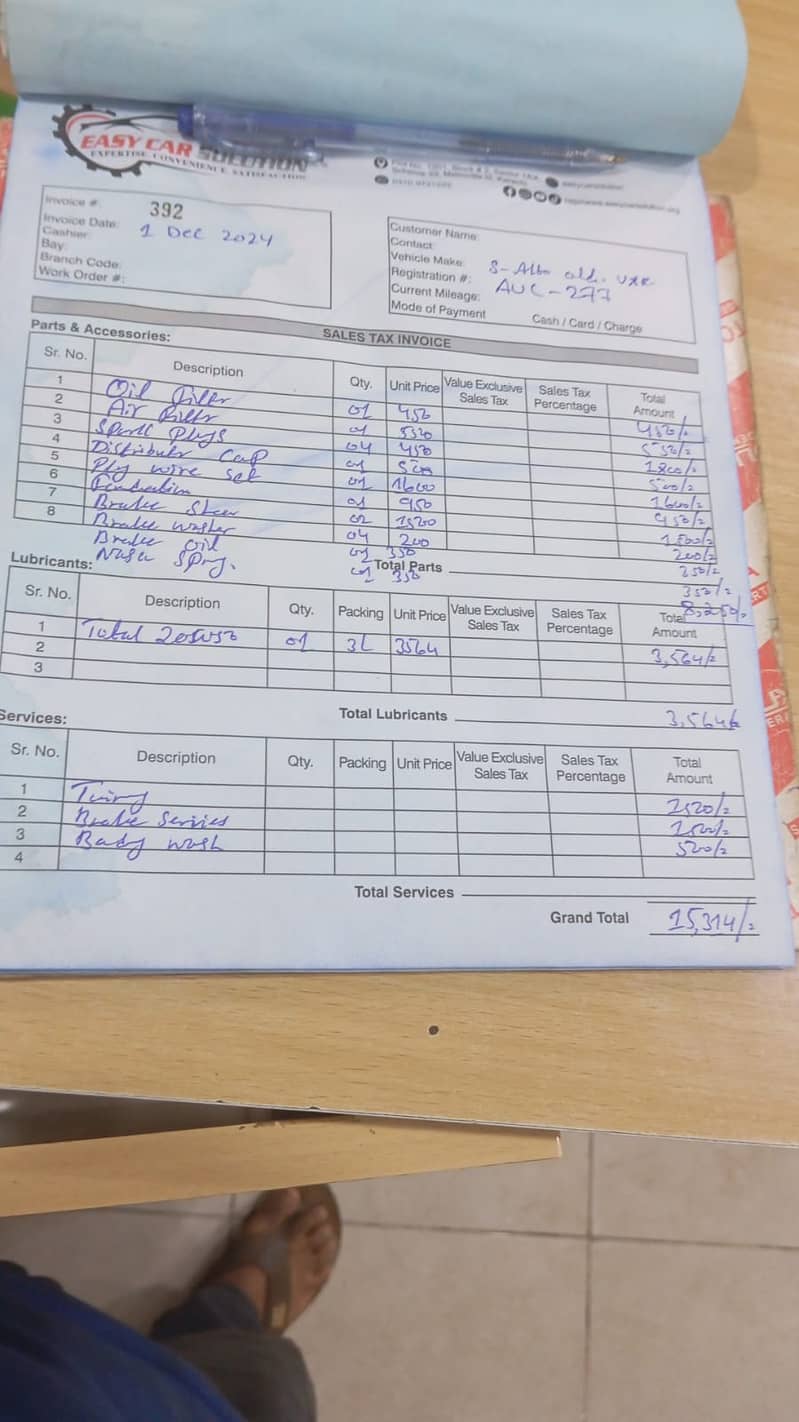 EASY CAR SOLUTION
EXPERTISE CONVENIENCE SATISFACTION
Invoice #: 392
Invoice Date: 1 Dec 2024
Cashier:
Bay:
Branch Code:
Work Order #:
Customer Name:
Contact:
Vehicle Make:
Registration #: AUC-277
Current Mileage:
Mode of Payment Cash / Card / Charge
SALES TAX INVOICE
Parts & Accessories:
Sr. No. Description Qty. Unit Price Value Exclusive Sales Tax Sales Tax Percentage Total Amount
1 Oil Filter 01 450 450/=
2 Air Filter 01 550 550/=
3 Spark Plugs 04 450 1800/=
4 Distributer Cap 01 500 500/=
5 Plg wire set 01 1600 1600/=
6 01 950 950/=
7 Brake 02 1500 1500/=
8 Brake washer 04 200 200/=
Brake oil 01 350 350/=
01 350 350/=
Total Parts 8,250/=
Lubricants:
Sr. No. Description Qty. Packing Unit Price Value Exclusive Sales Tax Sales Tax Percentage Total Amount
1 Total 20W50 01 3L 3564 3,564/=
2
3
Total Lubricants 3,564/=
Services:
Sr. No. Description Qty. Packing Unit Price Value Exclusive Sales Tax Sales Tax Percentage Total Amount
1 1500/=
2 Brake Services 1500/=
3 Body wash 500/=
4
Total Services
Grand Total 15,314/=